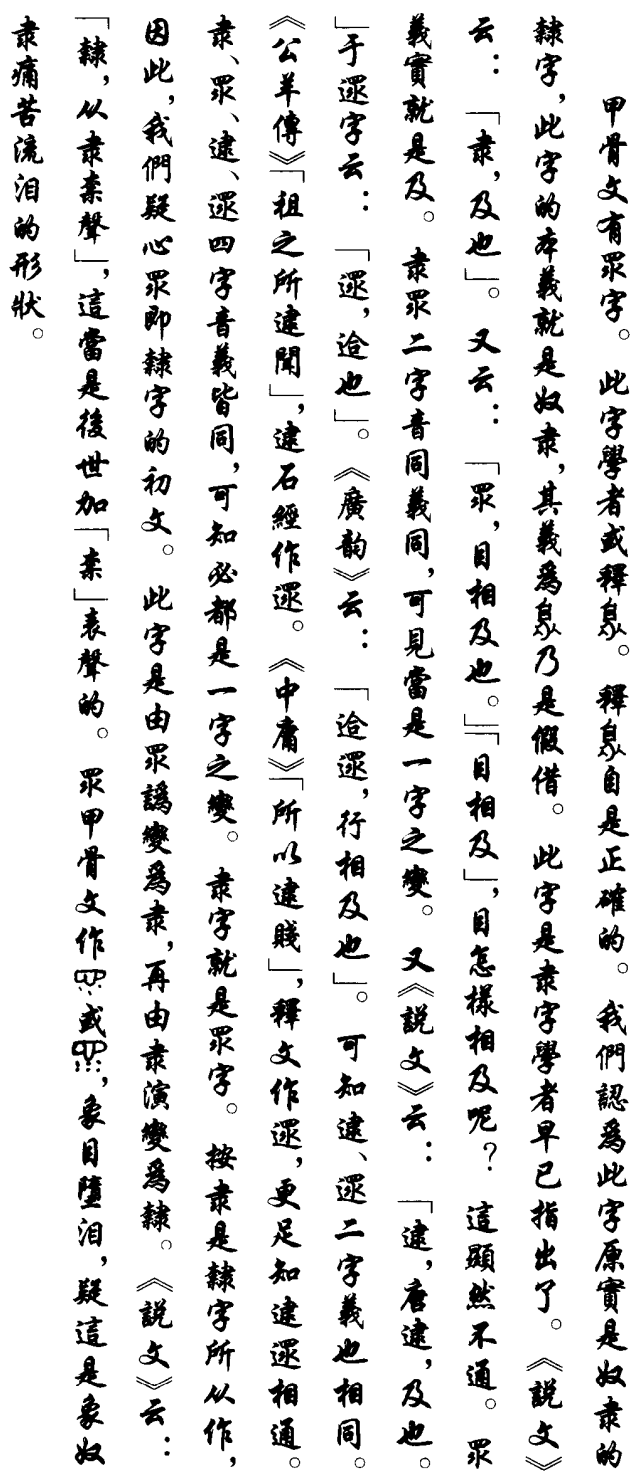 甲骨文有眔字。此字學者或釋臮。釋臮自是正確的。我們認爲此字原實是奴隶的
隸字,此字的本義就是奴隶,其義爲臮乃是假借。此字是隶字學者早已指出了。《説文》
云:「隶,及也」。又云:「眔,目相及也。」「目相及」,目怎樣相及呢?這顯然不通。眔
義實就是及。隶眔二字音同義同,可見當是一字之變。又《説文》云:「逮,唐逮,及也。
」于遝字云:「遝,迨也」。《廣韵》云:「迨遝,行相及也」。可知逮、遝二字義也相同。
《公羊傳》「祖之所逮聞」,逮石經作遝。《中庸》「所以逮賤」,釋文作遝,更足知逮遝相通。
隶、眔、逮、遝四字音義皆同,可知必都是一字之變。隶字就是眔字。按隶是隸字所从作,
因此,我們疑心眔即隸字的初文。此字是由眔譌變爲隶,再由隶演變爲隸。《説文》云:
「隸,从隶柰聲」,這當是後世加「柰」表聲的。眔甲骨文作或,象目墮泪,疑這是象奴
隶痛苦流泪的形狀。